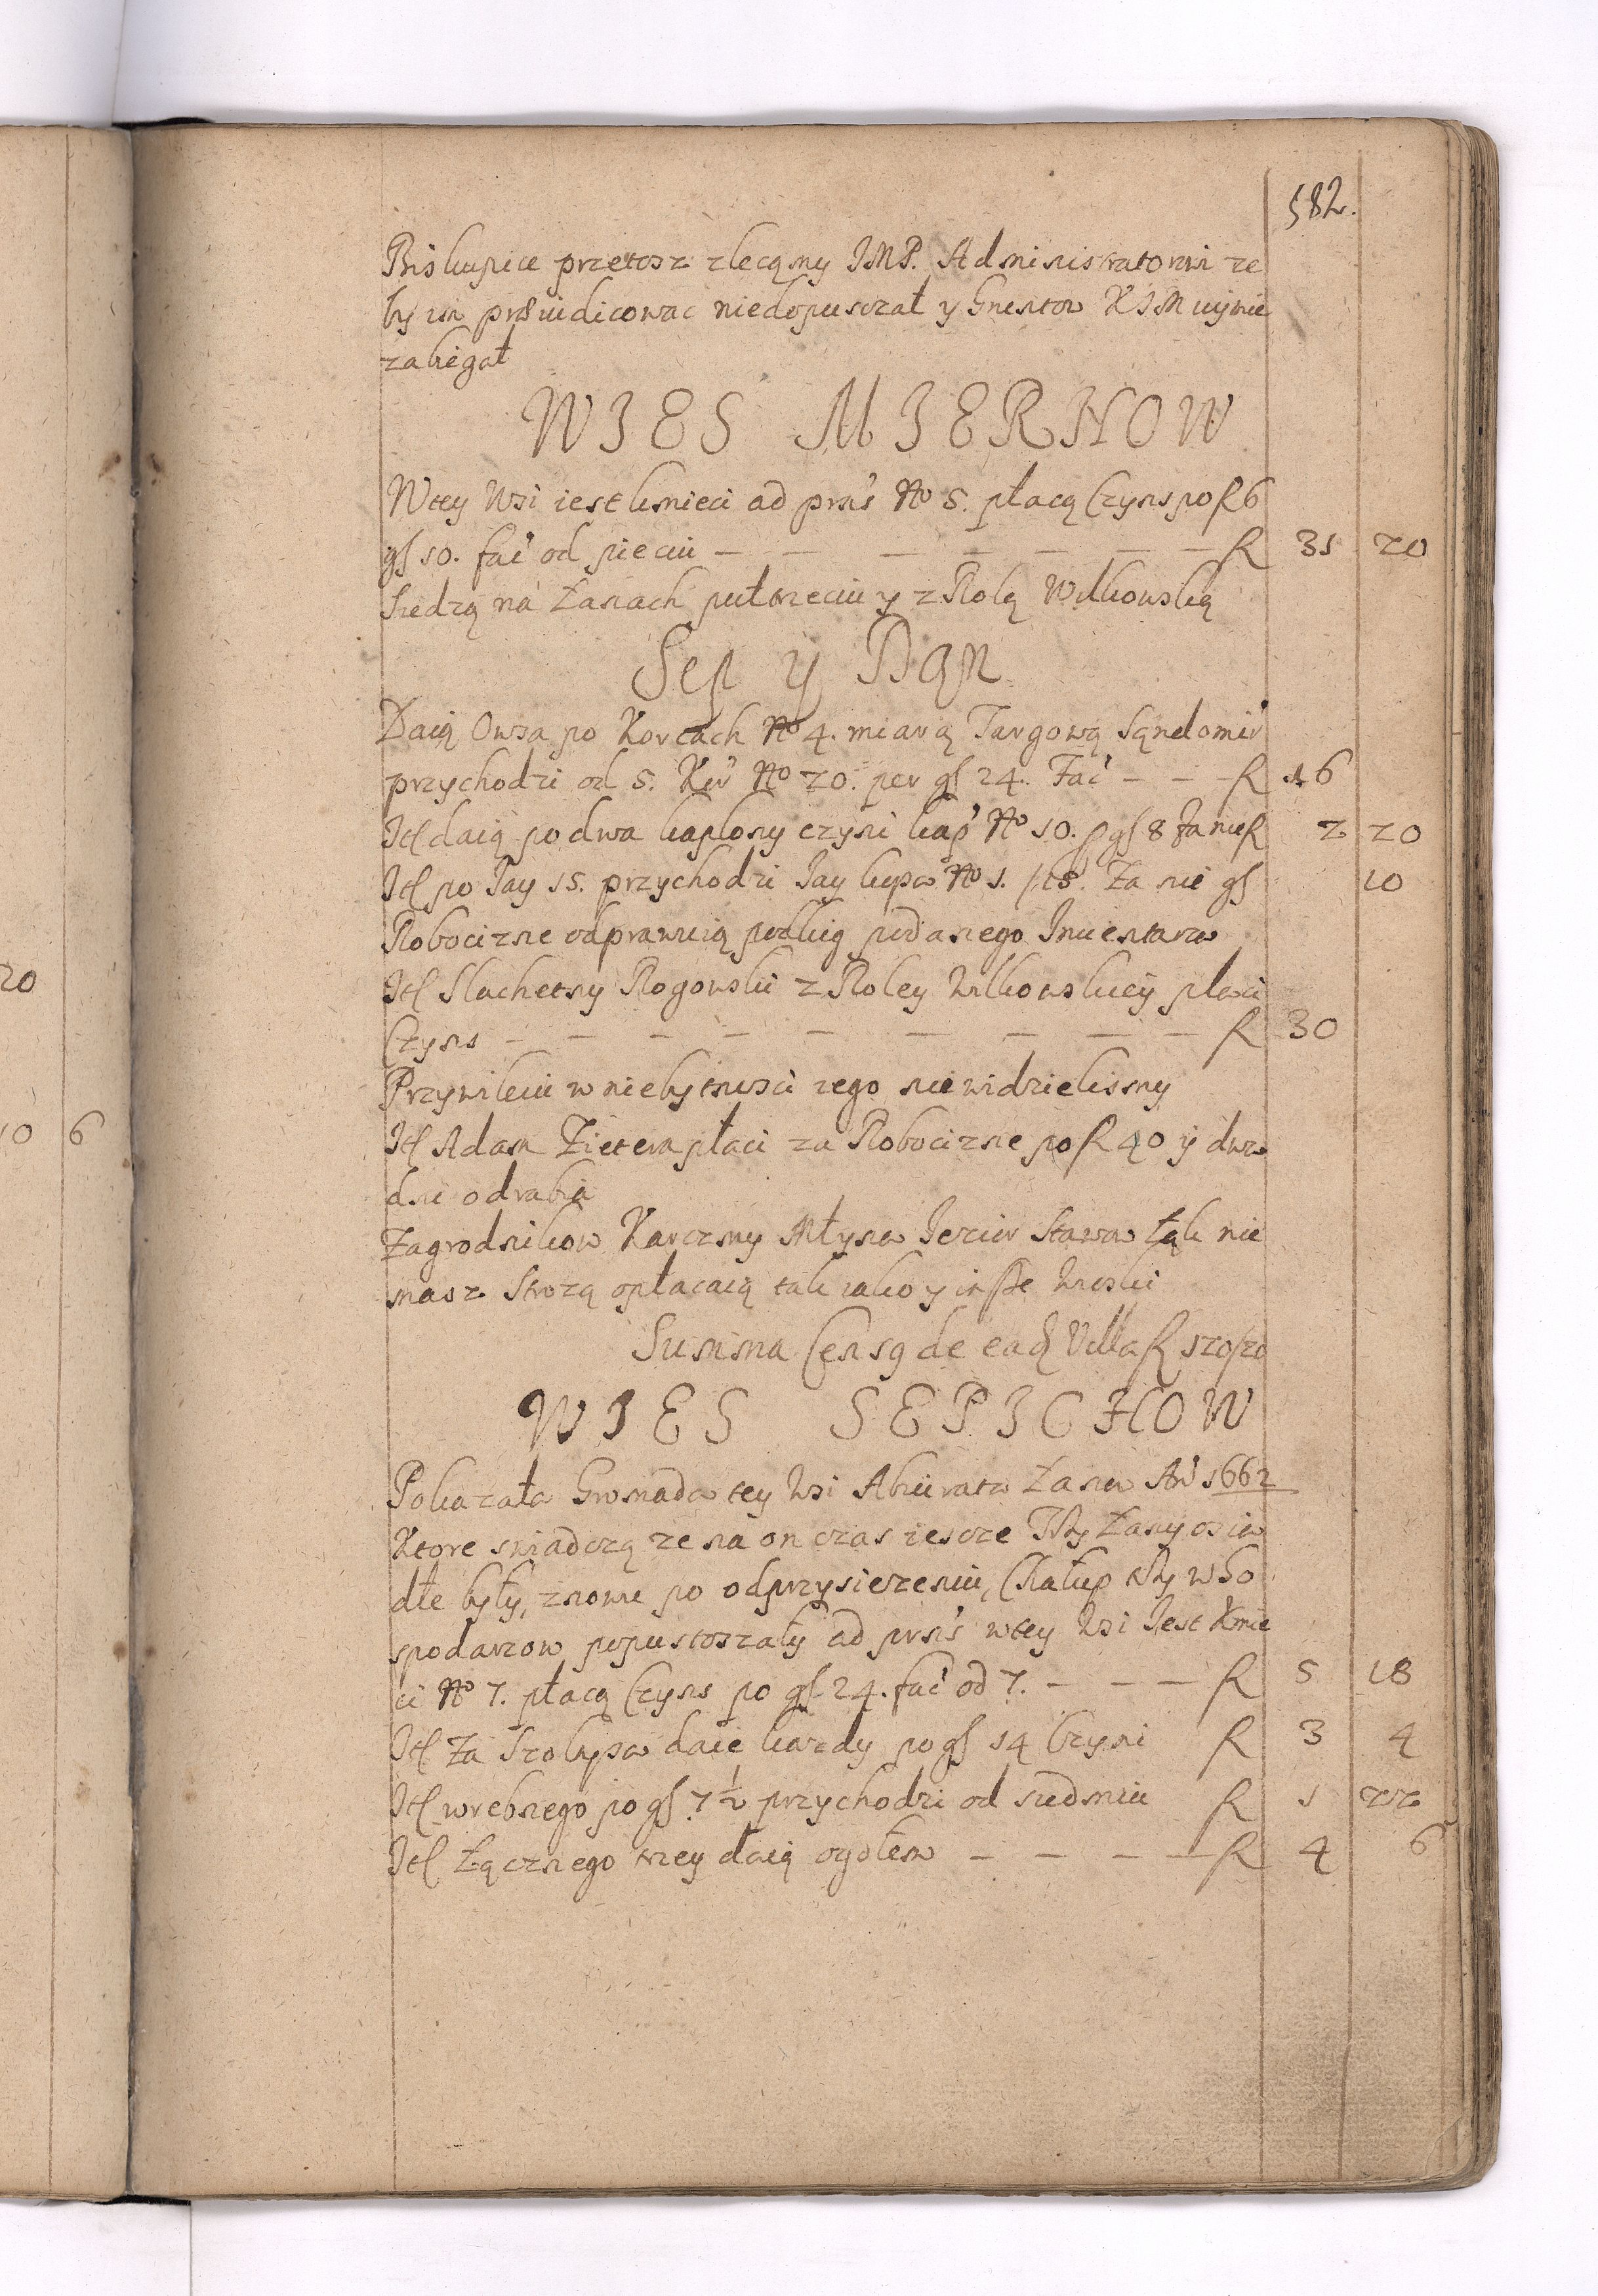 582.
Biskupice przetosz zlecamy JMP. Administratorowi ze
by im præiudicowac niedopusczał y Gruntow KJM uymie
zabiegał
WIES MIERNOW
Wtey Wsi iest kmieci ad præs No 5. płacą Czynsz po R 6
gſ 10. fac od pieciu — — — — — — — R 31 20
Siedzą na Łanach pułtrzeciu y z Rolą Wilkowską
Sep y Dan
Daią Owsa po Korcach No 4. miarą Targową Sandomir
przychodzi od 5. Kor No 20. per gſ 24. Fac — — — R 16
Itſ daią po dwa kapłony czyni kap No 10. p gſ 8 Za nie R 2 20
Itſ po Jay 15. przychodzi Jay kupa No 1. /15. Za nie gſ 10
Robocizne odprawuią podług podanego Inuentarza
Itſ Slachetny Rogowski z Roley Wilkowskiey płaci
Czyns — — — — — — — — R 30
Przywileiu w niebytnosci iego nie widzielismy
Itſ Adam Zietera płaci za Robocizne po R 40 y dwa
dni odrabia
Zagrodnikow Karczmy Młyna Jezior Stawu Łąk nie
masz Strozą opłacaią tak iako y insze Wioski
Summa Censq de ead Villa R 120/20
WIES SEPICHOW
Pokazała Gromada tey Wsi Abiurata Łanu An 1662
Ktore swiadczą ze na on czas iescze Trzy Łany osia
dłe były, znowu po odprzysiezeniu, Chałup trzy w Go
spodarzow popustoszały ad præs wtey Wsi Jest Kmie
ci No 7. płacą Czyns po gſ 24. fac od 7. — — — R 5 18
Itſ Za daie kazdy po gſ 14 Czyni R 3 4
Itſ wrebnego po gſ 7½ przychodzi od siedmiu R 1 22
Itſ Łącznego wszey daią ogołem — — — — R 4 6
20
10 6